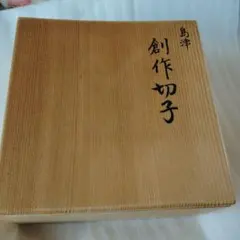 島津
創作切子